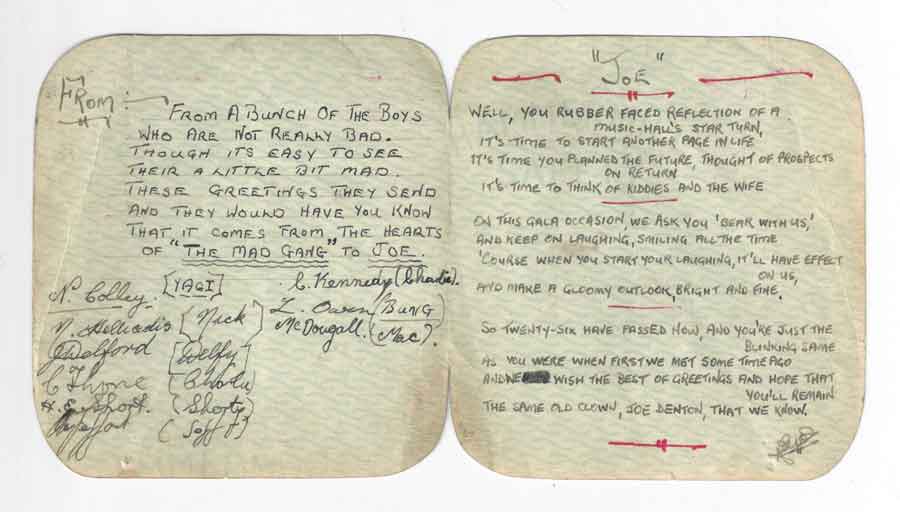 FROM:
FROM A BUNCH OF THE BOYS
WHO ARE NOT REALLY BAD.
THOUGH ITS EASY TO SEE
THEIR A LITTLE BIT MAD.
THESE GREETINGS THEY SEND
AND THEY WOULD HAVE YOU KNOW
THAT IT COMES FROM THE HEARTS
OF "THE MAD GANG" TO JOE.
N. Colley. [YAGI]
C. Kennedy (Chadie).
[Nick]
L. Owen (BUNG
McDougall. (Mac).
[Delfy]
C Throne
H. E. Short. (Shorty)
"JOE"
WELL, YOU RUBBER FACED REFLECTION OF A
MUSIC-HALL'S STAR TURN,
IT'S TIME TO START ANOTHER PAGE IN LIFE
IT'S TIME YOU PLANNED THE FUTURE, THOUGHT OF PROSPECTS
ON RETURN
IT'S TIME TO THINK OF KIDDIES AND THE WIFE
ON THIS GALA OCCASION, WE ASK YOU 'BEAR WITH US,'
AND KEEP ON LAUGHING, SMILING ALL THE TIME
'COURSE WHEN YOU START YOUR LAUGHING, IT'LL HAVE EFFECT
ON US,
AND MAKE A GLOOMY OUTLOOK, BRIGHT AND FINE.
SO TWENTY-SIX HAVE PASSED NOW, AND YOU'RE JUST THE
BLINKING SAME
AS YOU WERE WHEN FIRST WE MET SOME TIME AGO
AND WE WISH THE BEST OF GREETINGS AND HOPE THAT
YOU'LL REMAIN
THE SAME OLD CLOWN, JOE DENTON, THAT WE KNOW.